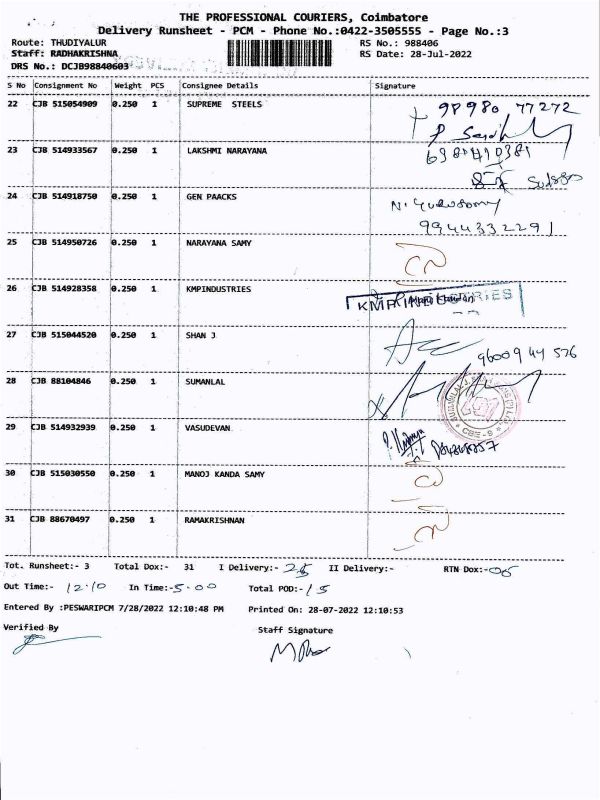 THE PROFESSIONAL COURIERS, Coimbatore
Delivery Runsheet - PCM - Phone No.:0422-3505555 - Page No.:3
Route: THUDIYALUR RS No.: 988406
Staff: RADHAKRISHNA RS Date: 28-Jul-2022
DRS No.: DCJB98840603
S No Consignment No Weight PCS Consignee Details Signature
22 CJB 515054909 0.250 1 SUPREME STEELS 98980 77272
23 CJB 514933567 0.250 1 LAKSHMI NARAYANA
24 CJB 514918750 0.250 1 GEN PAACKS
9944332291
25 CJB 514950726 0.250 1 NARAYANA SAMY
26 CJB 514928358 0.250 1 KMPINDUSTRIES KMP INDUSTRIES
27 CJB 515044520 0.250 1 SHAN J
28 CJB 88104846 0.250 1 SUMANLAL
29 CJB 514932939 0.250 1 VASUDEVAN
30 CJB 515030550 0.250 1 MANOJ KANDA SAMY
31 CJB 88670497 0.250 1 RAMAKRISHNAN
Tot. Runsheet:- 3 Total Dox:- 31 I Delivery:- 25 II Delivery:- RTN Dox:- 06
Out Time:- 12:10 In Time:- 5-00 Total POD:- 15
Entered By :PESWARIPCM 7/28/2022 12:10:48 PM Printed On: 28-07-2022 12:10:53
Verified By Staff Signature